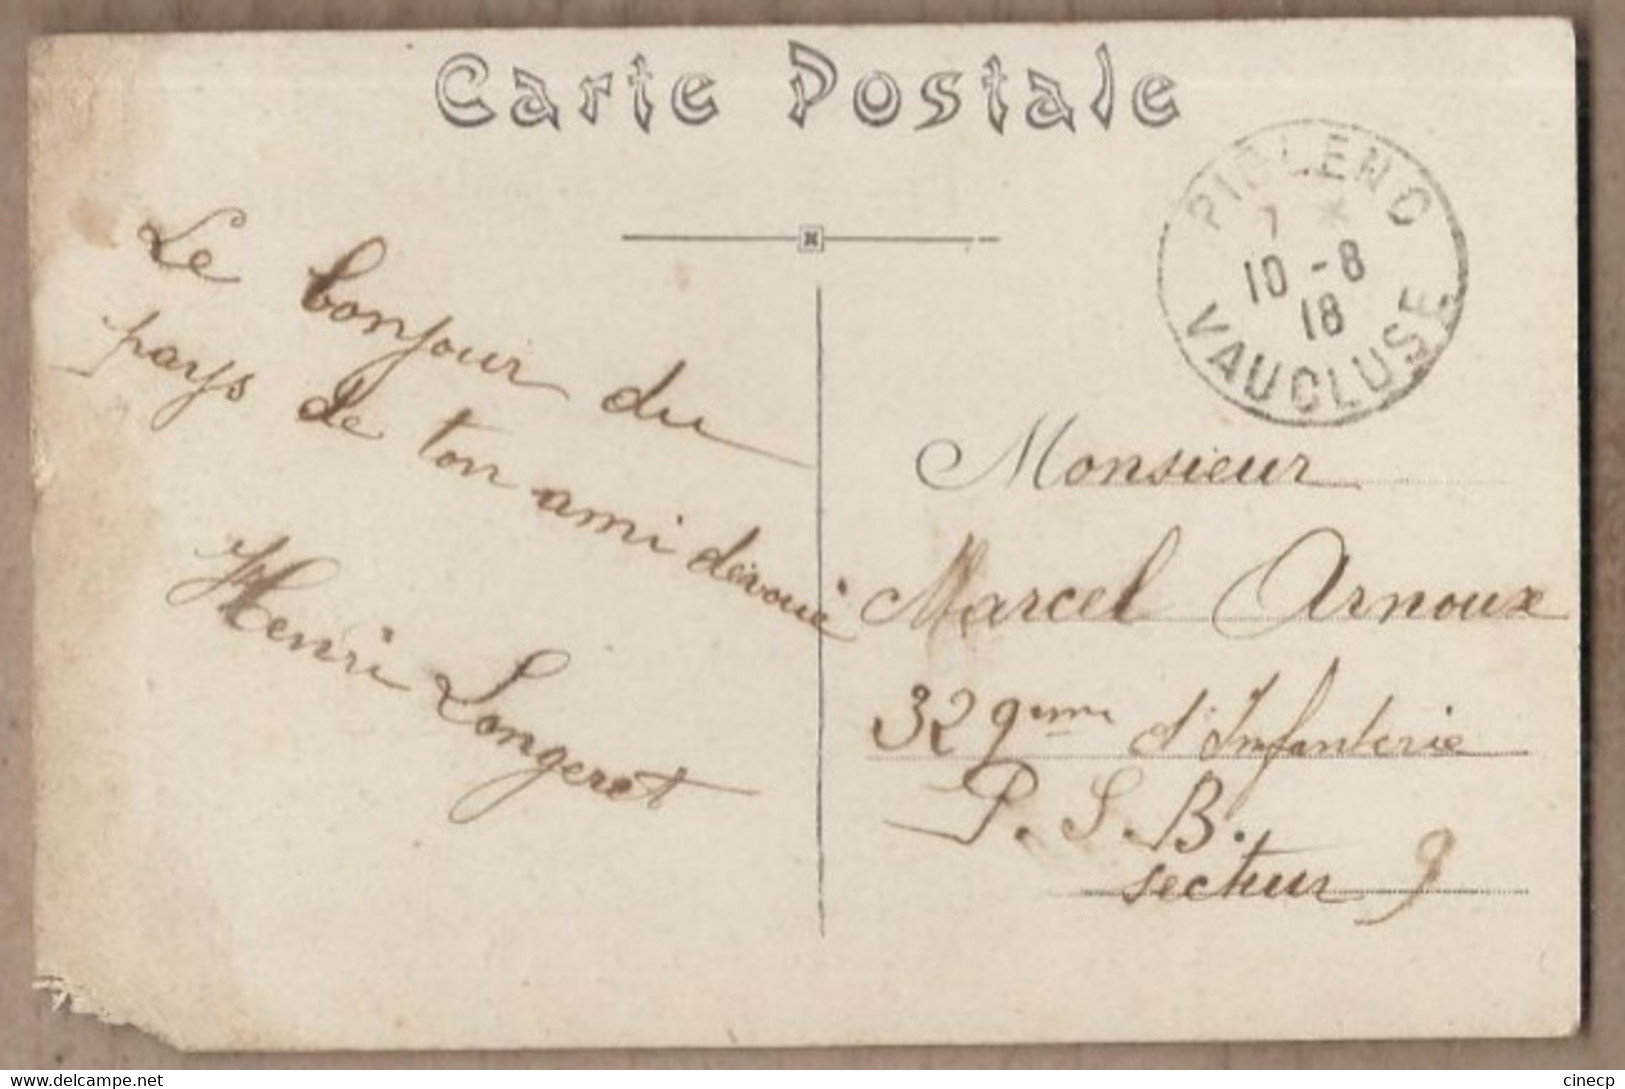 Carte Postale
PIOLENC
7 *
10 - 8
18
VAUCLUSE
Le bonjour du
pays de ton ami dévoué
Henri Longeret
Monsieur
Marcel Arnoux
329eme d'Infanterie
P.S.B.
secteur 9
cinecp